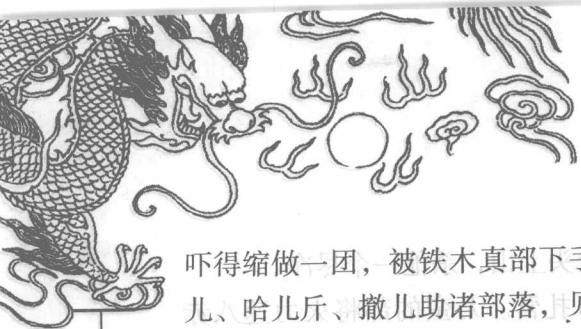 吓得缩做一团，被铁木真部下
儿、哈儿斤、撤儿助诸部落，